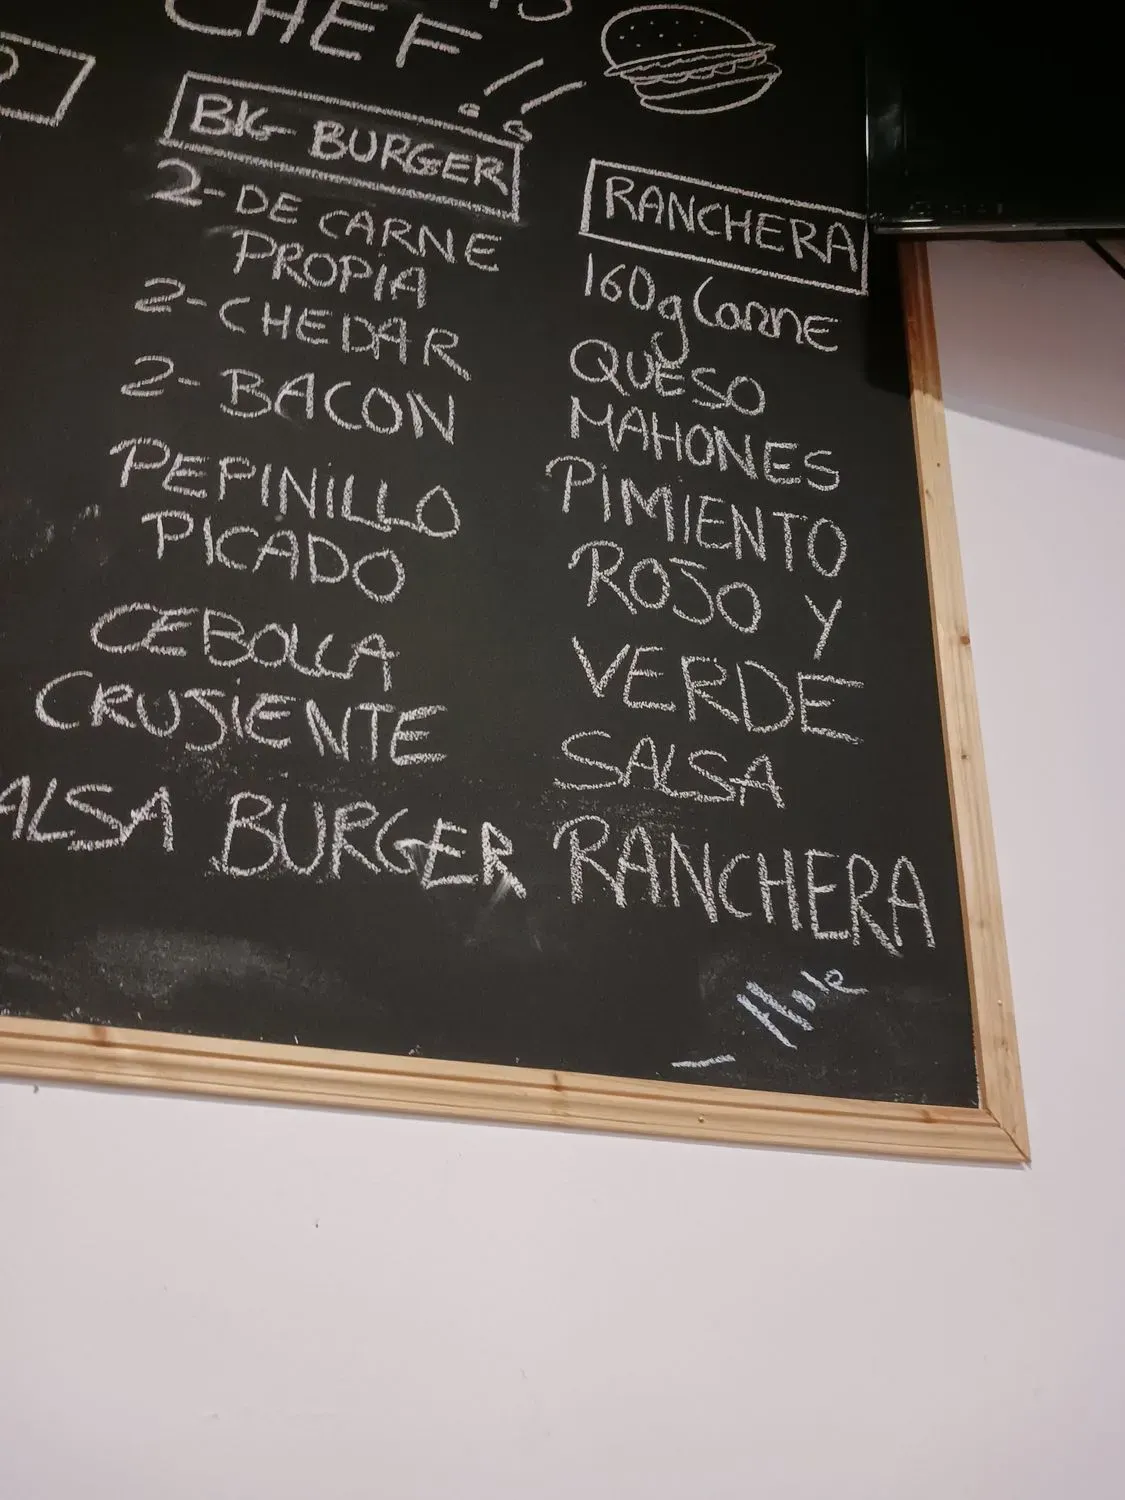 CHEF
BIG BURGER
2-DE CARNE
PROPIA
2-CHEDAR
2-BACON
PEPINILLO
PICADO
CEBOLLA
CRUJIENTE
ALSA BURGER
RANCHERA
160g Carne
QUESO
MAHONES
PIMIENTO
ROJO Y
VERDE
SALSA
RANCHERA